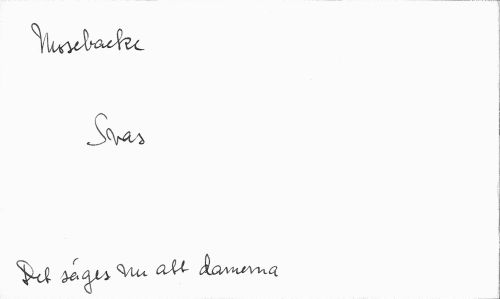 Mosebacke
Svas
Det säges nu att damerna